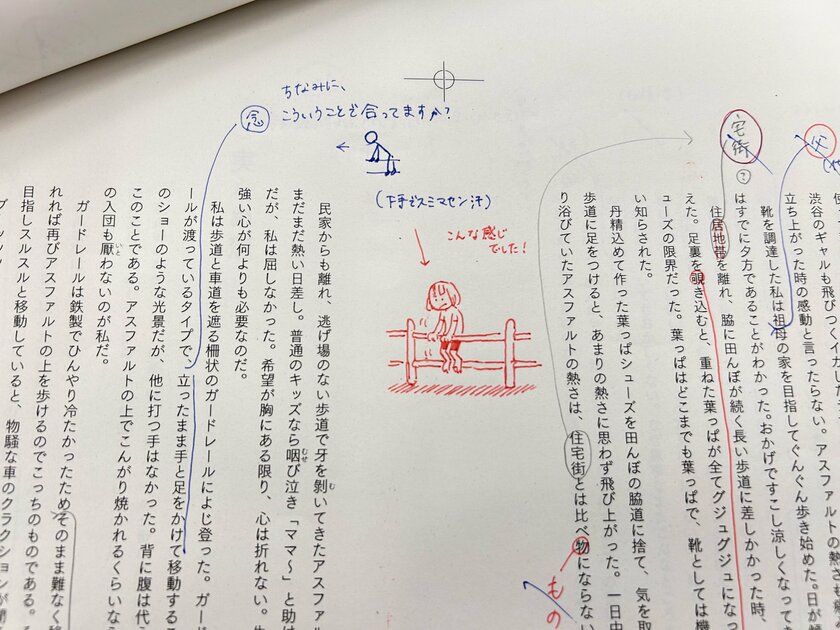 ちなみに、
念 こういうことで合ってますか?
←
(下手でスミマセン汗)
こんな感じ
でした!
宅街
?
渋谷のギャルも飛びつくイカした
立ち上がった時の感動と言ったらない。アスファルトの熱さも
靴を調達した私は祖母の家を目指してぐんぐん歩き始めた。日が
はすでに夕方であることがわかった。おかげですこし涼しくなってき
住居地帯を離れ、脇に田んぼが続く長い歩道に差しかかった時、
えた。足裏を覗き込むと、重ねた葉っぱが全てグジュグジュになっ
ューズの限界だった。葉っぱはどこまでも葉っぱで、靴としては機
い知らされた。
丹精込めて作った葉っぱシューズを田んぼの脇道に捨て、気を取
歩道に足をつけると、あまりの熱さに思わず飛び上がった。一日中
り浴びていたアスファルトの熱さは、住宅街とは比べ物にならない
もの
民家からも離れ、逃げ場のない歩道で牙を剝いてきたアスファル
まだまだ熱い日差し。普通のキッズなら咽び泣き「ママ〜」と助け
だが、私は屈しなかった。希望が胸にある限り、心は折れない。
強い心が何よりも必要なのだ。
私は歩道と車道を遮る柵状のガードレールによじ登った。ガード
ールが渡っているタイプで、立ったまま手と足をかけて移動するこ
のショーのような光景だが、他に打つ手はなかった。背に腹は代
このことである。アスファルトの上でこんがり焼かれるくらいなら
の入団も厭わないのが私だ。
ガードレールは鉄製でひんやり冷たかったためそのまま難なく移
れれば再びアスファルトの上を歩けるのでこっちのものである。
目指しスルスルと移動していると、物騒な車のクラクションが聞